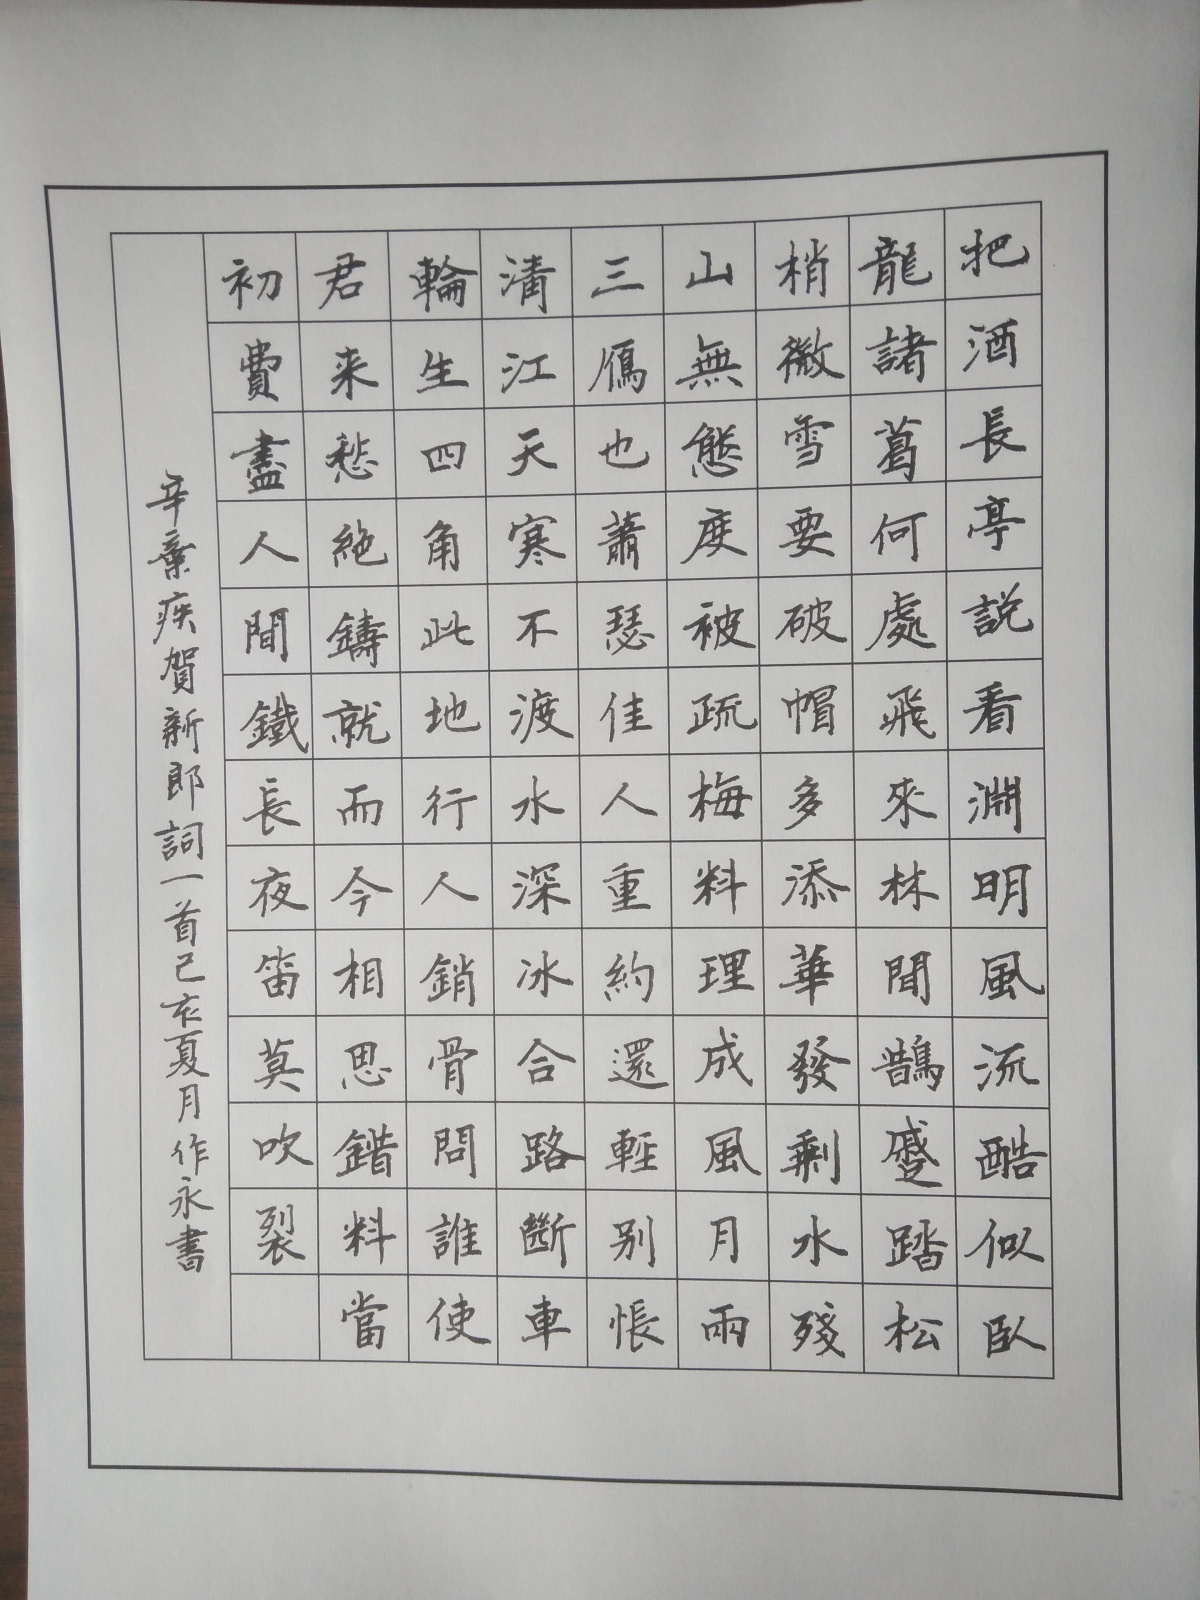 把酒長亭說看淵明風流酷似臥
龍諸葛何處飛來林間鵲蹙踏松
梢微雪要破帽多添華發剩水殘
山無態度被疏梅料理成風月兩
三鴈也蕭瑟佳人重約還輕別悵
清江天寒不渡水深冰合路斷車
輪生四角此地行人銷骨問誰使
君来愁絕鑄就而今相思錯料當
初費盡人間鐵長夜笛莫吹裂
辛棄疾賀新郎詞一首己亥夏月作永書